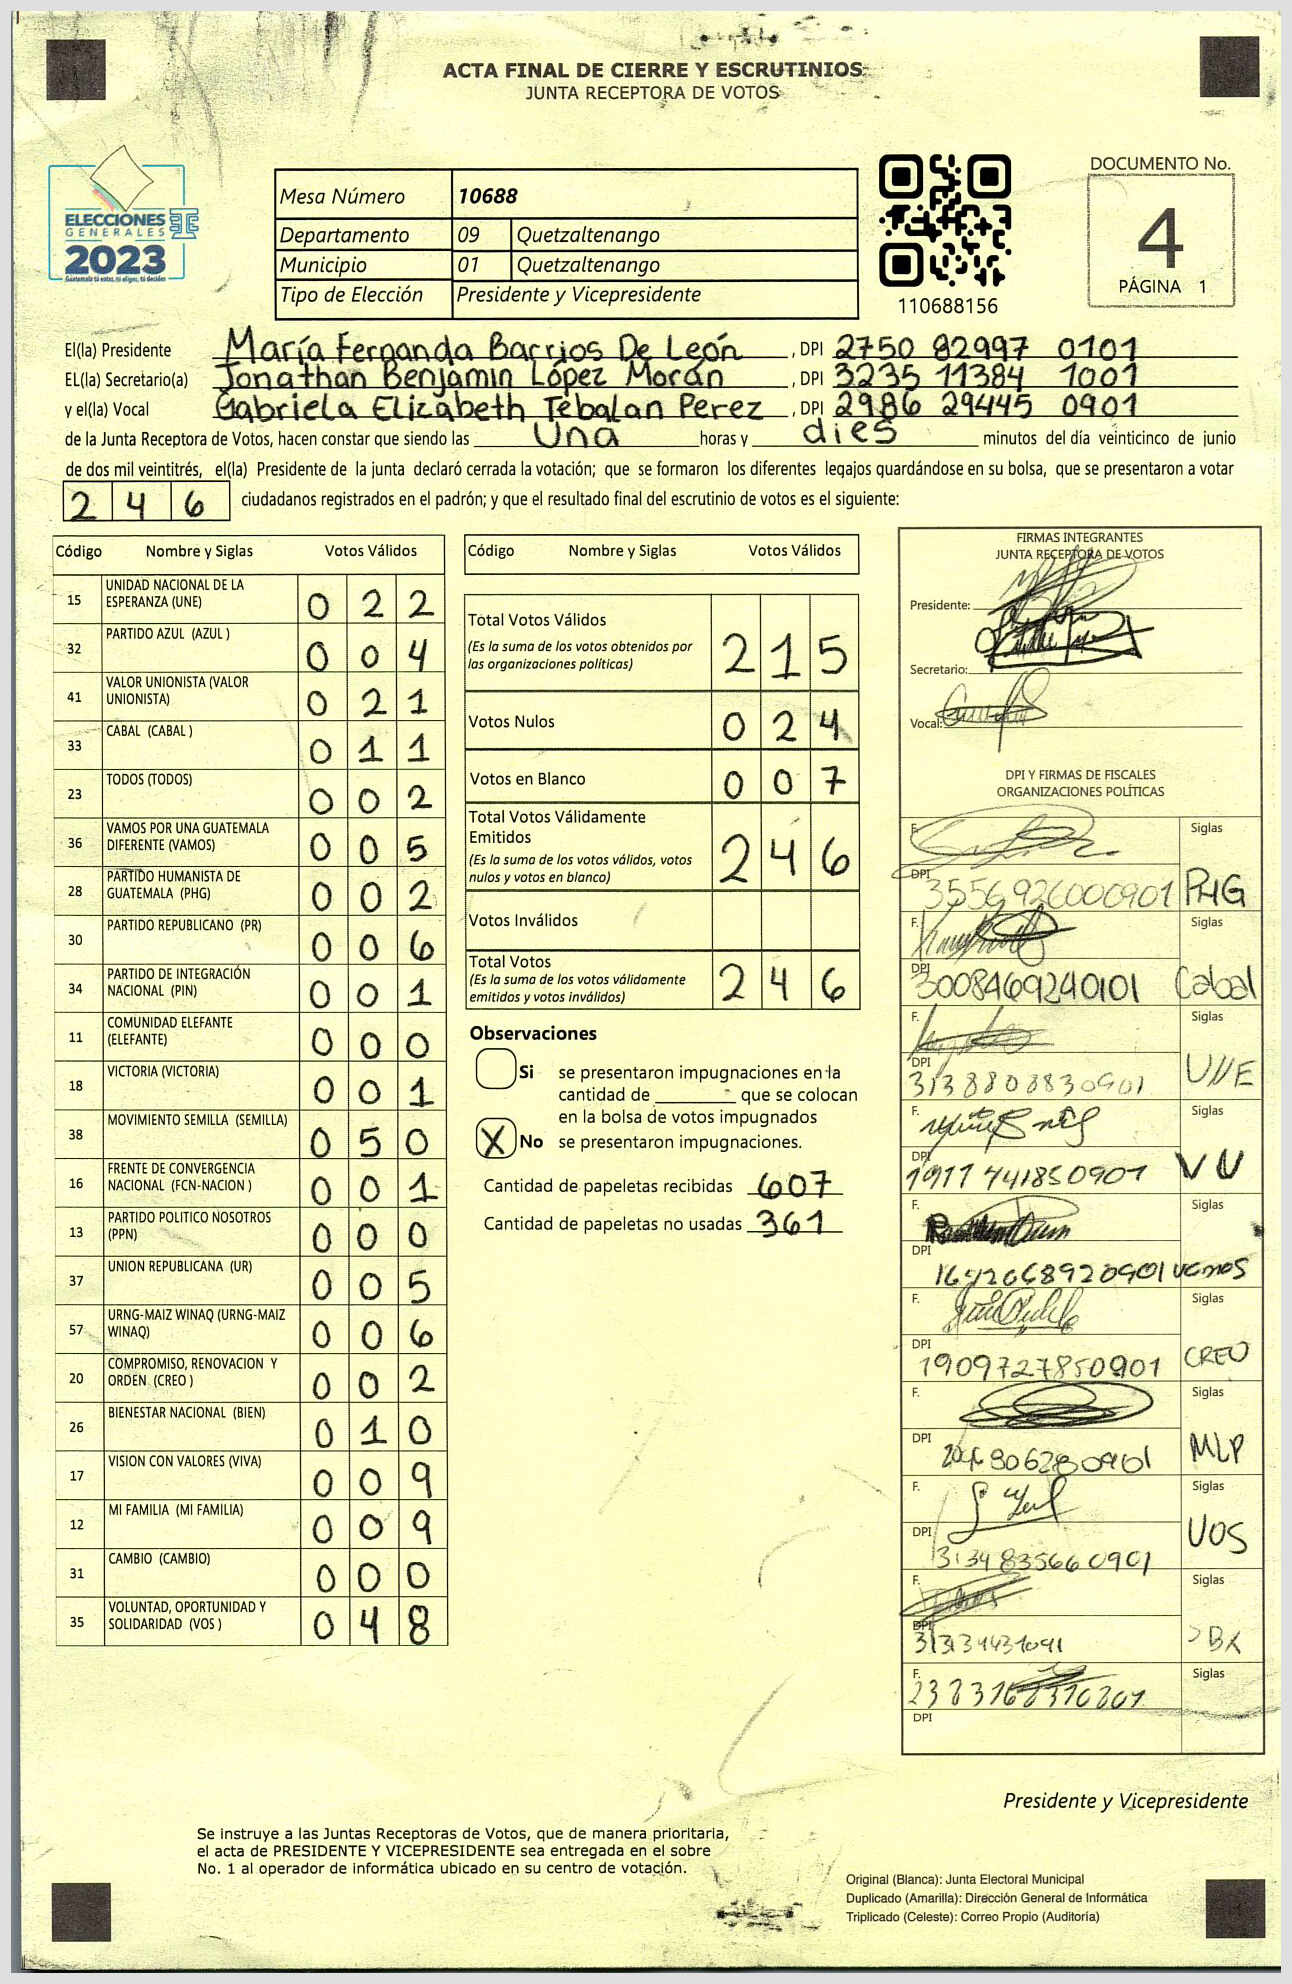 ACTA FINAL DE CIERRE Y ESCRUTINIOS
JUNTA RECEPTORA DE VOTOS
ELECCIONES
GENERALES
2023
Guatemala tú votas, tú eliges, tú decides
Mesa Número 10688
Departamento 09 Quetzaltenango
Municipio 01 Quetzaltenango
Tipo de Elección Presidente y Vicepresidente
110688156
DOCUMENTO No.
4
PÁGINA 1
El(la) Presidente María Fernanda Barrios De León, DPI 2750 82997 0101
EL(la) Secretario(a) Jonathan Benjamin López Morán, DPI 3235 11384 1001
y el(la) Vocal Gabriela Elizabeth Tebalan Perez, DPI 2986 29445 0901
de la Junta Receptora de Votos, hacen constar que siendo las Una horas y dies minutos del día veinticinco de junio
de dos mil veintitrés, el(la) Presidente de la junta declaró cerrada la votación; que se formaron los diferentes legajos guardándose en su bolsa, que se presentaron a votar
246 ciudadanos registrados en el padrón; y que el resultado final del escrutinio de votos es el siguiente:
Código Nombre y Siglas Votos Válidos
15 UNIDAD NACIONAL DE LA
ESPERANZA (UNE) 022
32 PARTIDO AZUL (AZUL ) 004
41 VALOR UNIONISTA (VALOR
UNIONISTA) 021
33 CABAL (CABAL ) 011
23 TODOS (TODOS) 002
36 VAMOS POR UNA GUATEMALA
DIFERENTE (VAMOS) 005
28 PARTIDO HUMANISTA DE
GUATEMALA (PHG) 002
30 PARTIDO REPUBLICANO (PR) 006
34 PARTIDO DE INTEGRACIÓN
NACIONAL (PIN) 001
11 COMUNIDAD ELEFANTE
(ELEFANTE) 000
18 VICTORIA (VICTORIA) 001
38 MOVIMIENTO SEMILLA (SEMILLA) 050
16 FRENTE DE CONVERGENCIA
NACIONAL (FCN-NACION ) 001
13 PARTIDO POLITICO NOSOTROS
(PPN) 000
37 UNION REPUBLICANA (UR) 005
57 URNG-MAIZ WINAQ (URNG-MAIZ
WINAQ) 006
20 COMPROMISO, RENOVACION Y
ORDEN (CREO ) 002
26 BIENESTAR NACIONAL (BIEN) 010
17 VISION CON VALORES (VIVA) 009
12 MI FAMILIA (MI FAMILIA) 009
31 CAMBIO (CAMBIO) 000
35 VOLUNTAD, OPORTUNIDAD Y
SOLIDARIDAD (VOS ) 048
Código Nombre y Siglas Votos Válidos
Total Votos Válidos
(Es la suma de los votos obtenidos por
las organizaciones políticas) 215
Votos Nulos 024
Votos en Blanco 007
Total Votos Válidamente
Emitidos
(Es la suma de los votos válidos, votos
nulos y votos en blanco) 246
Votos Inválidos
Total Votos
(Es la suma de los votos válidamente
emitidos y votos inválidos) 246
Observaciones
Si se presentaron impugnaciones en la
cantidad de ________ que se colocan
en la bolsa de votos impugnados
X No se presentaron impugnaciones.
Cantidad de papeletas recibidas 607
Cantidad de papeletas no usadas 361
FIRMAS INTEGRANTES
JUNTA RECEPTORA DE VOTOS
Presidente:
Secretario:
Vocal:
DPI Y FIRMAS DE FISCALES
ORGANIZACIONES POLÍTICAS
F. Siglas
DPI 3556926000901 PHG
F. Siglas
DPI 3008469240101 Cabal
F. Siglas
DPI 3138808830901 UNE
F. Siglas
DPI 1917741850901 VU
F. Siglas
DPI 1642068920901 vamos
F. Siglas
DPI 1909727850901 CREO
F. Siglas
DPI MLP
F. Siglas
DPI 3134835660901 VOS
F. Siglas
DPI
F. Siglas
DPI
Presidente y Vicepresidente
Se instruye a las Juntas Receptoras de Votos, que de manera prioritaria,
el acta de PRESIDENTE Y VICEPRESIDENTE sea entregada en el sobre
No. 1 al operador de informática ubicado en su centro de votación.
Original (Blanca): Junta Electoral Municipal
Duplicado (Amarilla): Dirección General de Informática
Triplicado (Celeste): Correo Propio (Auditoría)